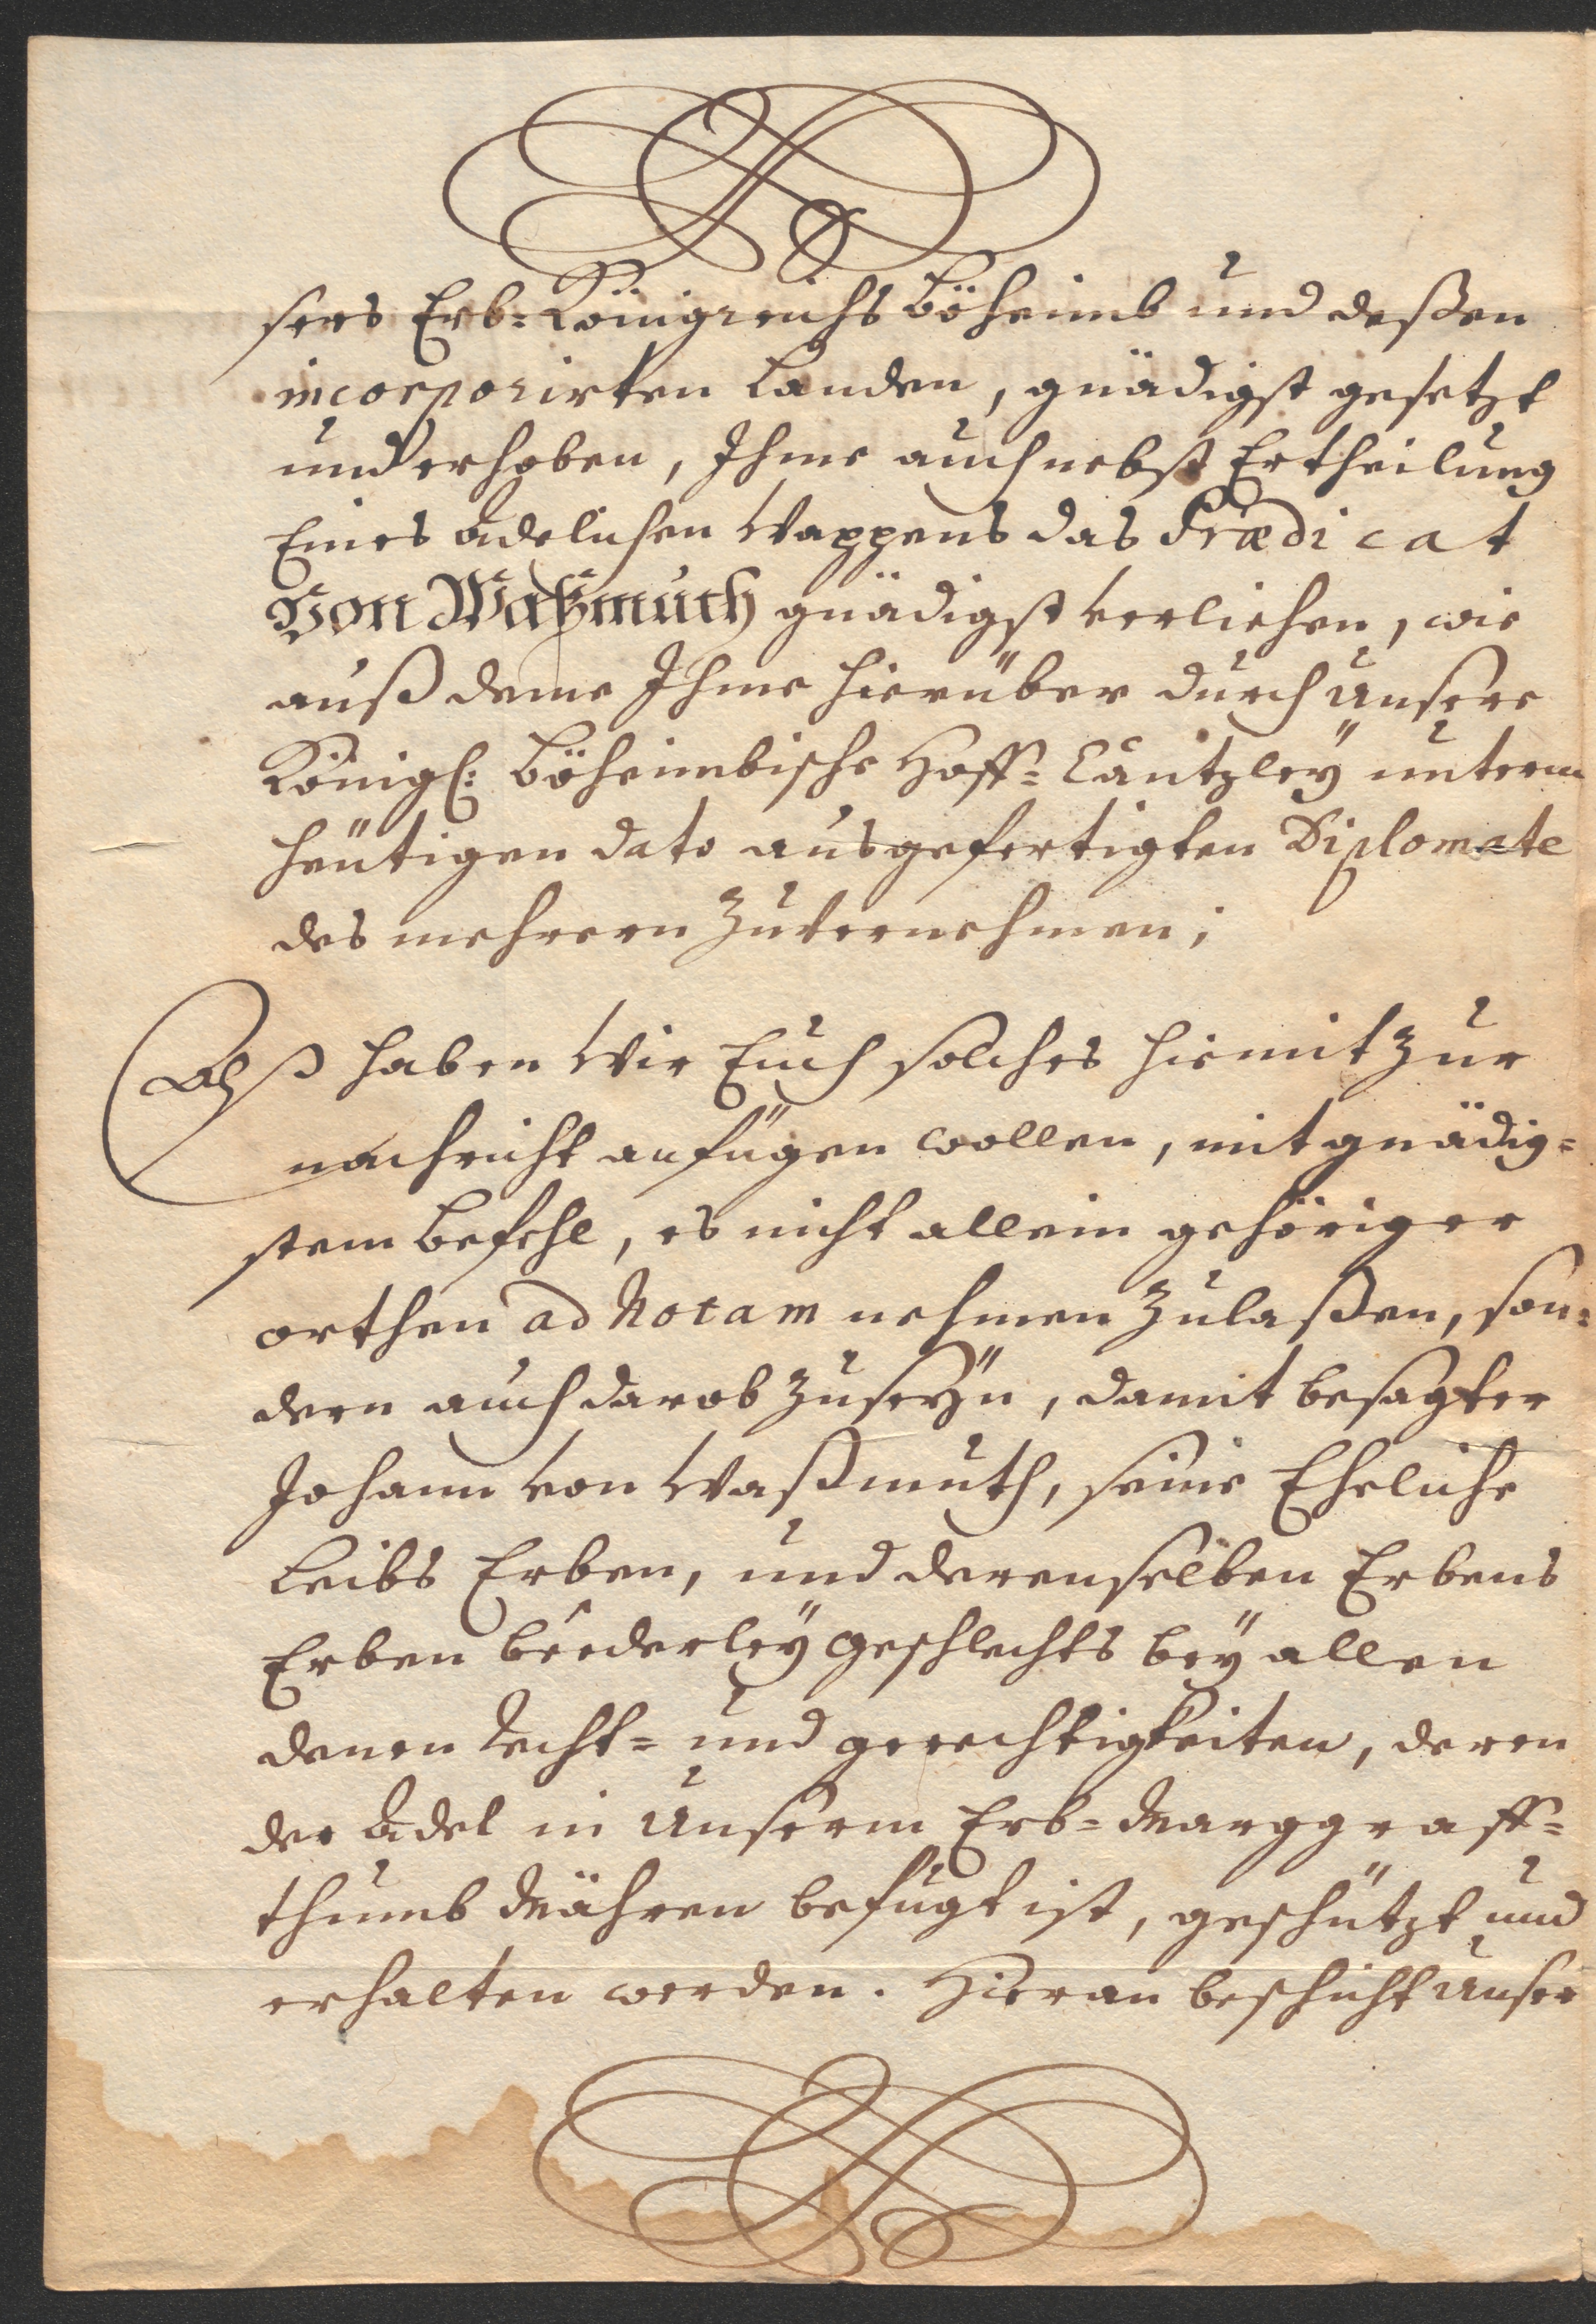 sers Erb=Königreichs Böheimb und deßen
incorporirten Landen, gnädigst gesetzt
und erhoben, Ihme auch nebst Ertheilung
Eines Adelichen Wappens das Prædicat
Von Waßmuth gnädigst verliehen, wie
auß deme Ihme hierüber durch Unsere
Königl: Böheimbische Hoff=Cantzley unterm
heütigen dato ausgefertigten Diplomate
des mehrern zuvernehmen;
Alß haben Wir Euch solches hiemit zur
nachricht anfügen wollen, mit gnädig=
stem Befehl, es nicht allein gehöriger
orthen ad Notam nehmen zulaßen, son=
dern auch darob zuseÿn, damit besagter
Johann von Waßmuth, seine Eheliche
Leibs Erben, und derenselben Erbens
Erben beederleÿ geschlechts beÿ allen
denen Recht= und gerechtigkeiten, deren
der Adel in Unserm Erb=Marggraff=
thumb Mähren befügt ist, geschützt und
erhalten werden. Hieran beschicht Unser